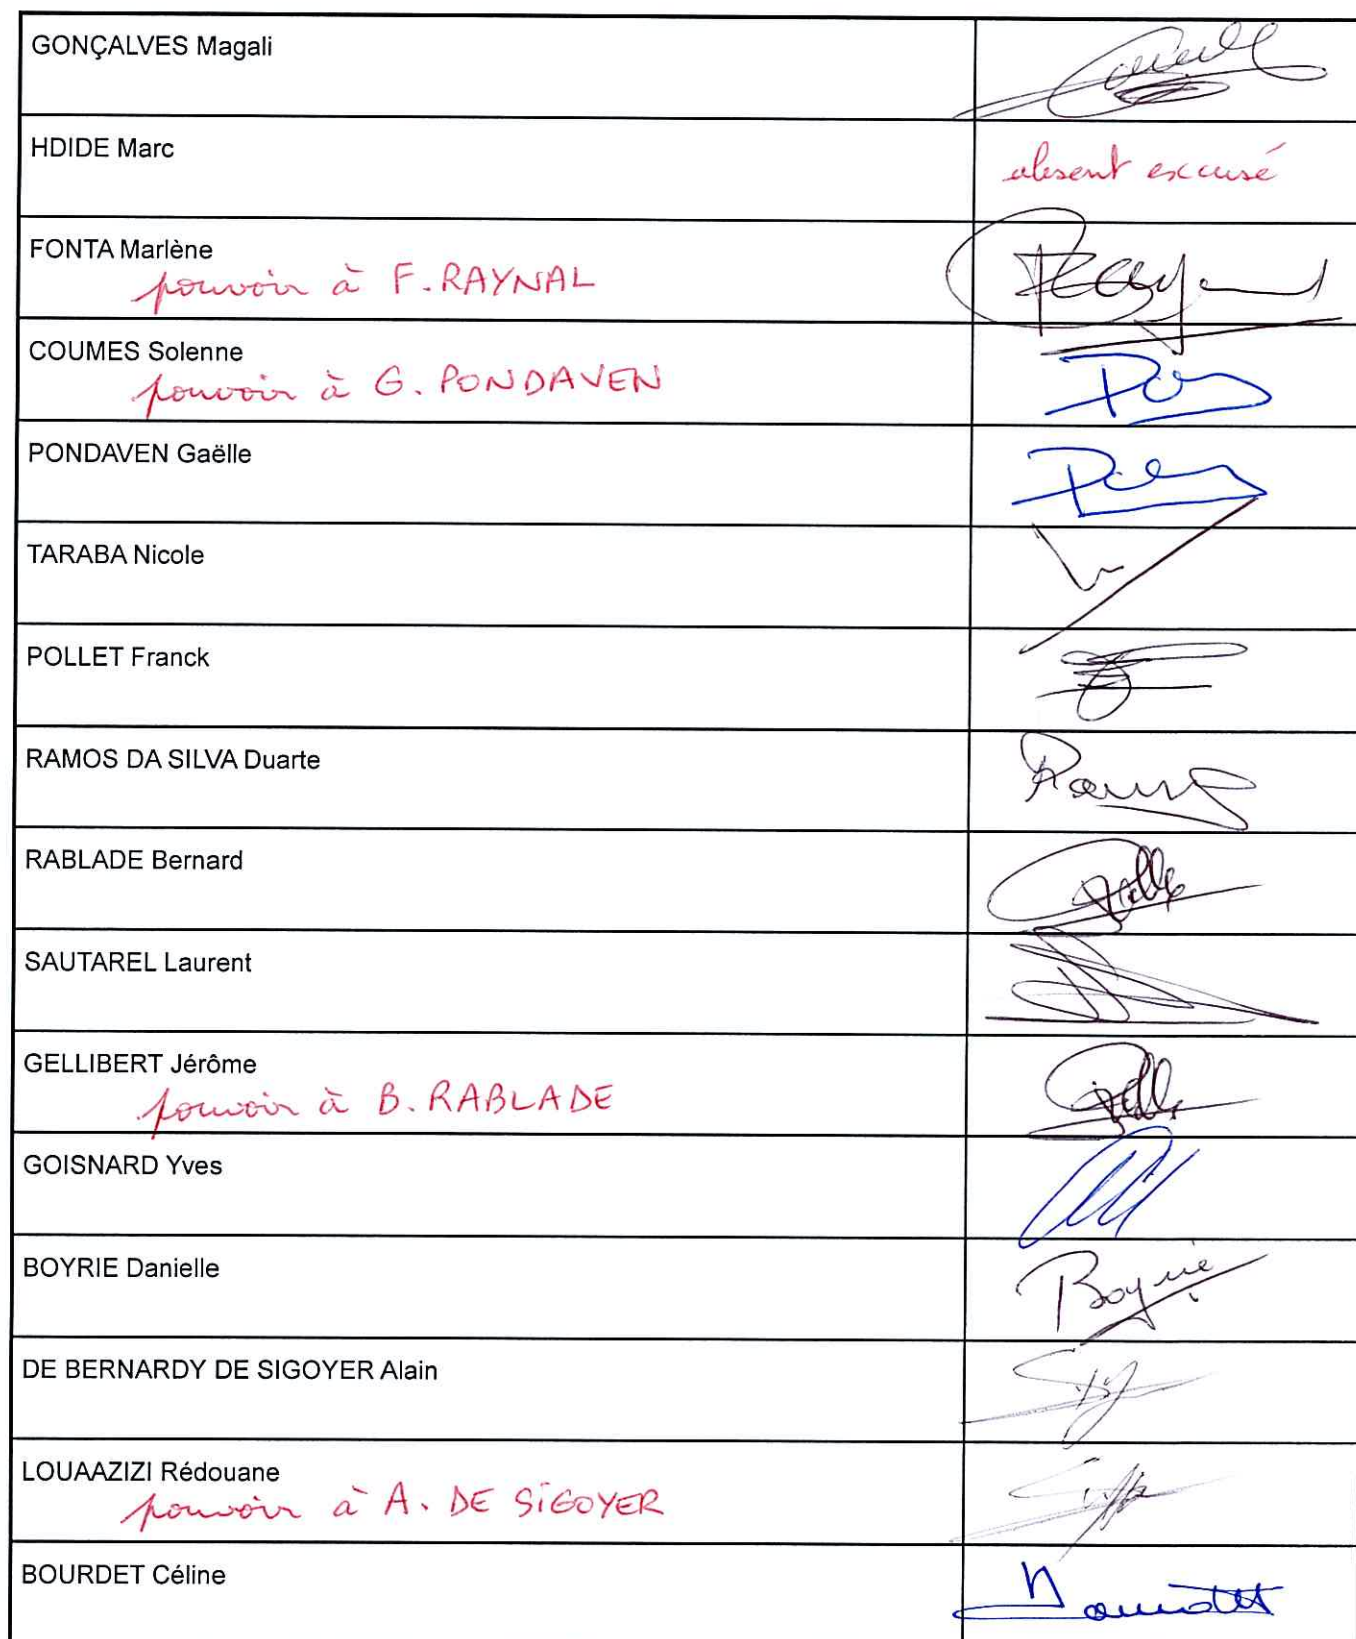 GONÇALVES Magali
HDIDE Marc
absent excusé
FONTA Marlène
pouvoir à F. RAYNAL
COUMES Solenne
pouvoir à G. PONDAVEN
PONDAVEN Gaëlle
TARABA Nicole
POLLET Franck
RAMOS DA SILVA Duarte
RABLADE Bernard
SAUTAREL Laurent
GELLIBERT Jérôme
pouvoir à B. RABLADE
GOISNARD Yves
BOYRIE Danielle
Boyrie
DE BERNARDY DE SIGOYER Alain
LOUAAZIZI Rédouane
pouvoir à A. DE SIGOYER
BOURDET Céline